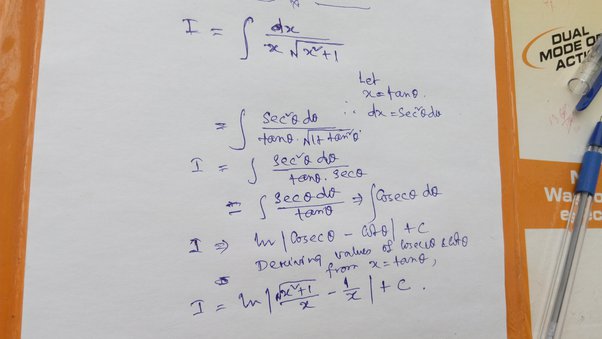 I = ∫ dx / x √x²+1
Let
x = tanθ
∴ dx = sec²θ dθ
= ∫ sec²θ dθ / tanθ · √1 + tan²θ
I = ∫ sec²θ dθ / tanθ · secθ
= ∫ secθ dθ / tanθ ⇒ ∫ cosecθ dθ
I ⇒ ln | cosecθ − cotθ | + C
Deriving values of cosecθ & cotθ
from x = tanθ,
I = ln | √x²+1 / x − 1 / x | + C.
DUAL
MODE OF
ACTI